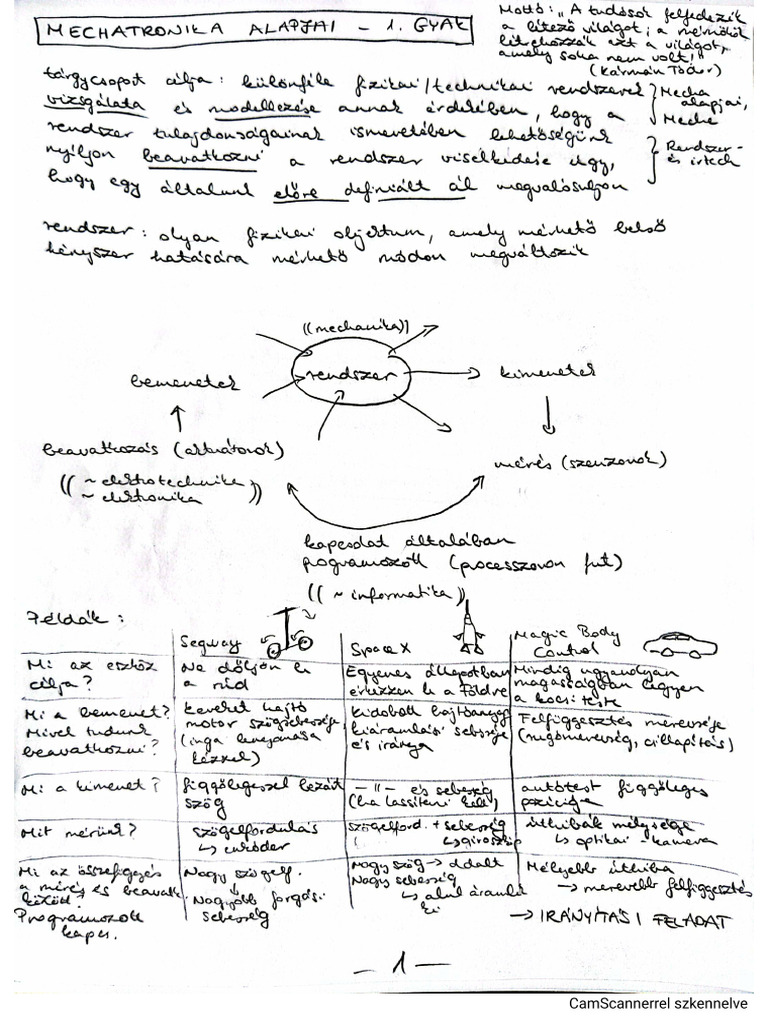 MECHATRONIKA ALAPJAI – 1. GYAK
Mottó: „A tudósok felfedezik
a létező világot; a mérnökök
létrehozzák azt a világot,
amely soha nem volt!"
(Kármán Tódor)
tárgycsoport célja: különféle fizikai/technikai rendszerek
vizsgálata és modellezése annak érdekében, hogy a
rendszer tulajdonságainak ismeretében lehetőségünk
nyíljon beavatkozni a rendszer viselkedésébe úgy,
hogy egy általunk előre definiált cél megvalósuljon
Mecha
alapjai,
Mecha
Rendszer-
és irtech
rendszer: olyan fizikai objektum, amely mérhető belső
kényszer hatására mérhető módon megváltozik
((mechanika))
bemenetek
rendszer
kimenetek
beavatkozás (aktuátorok)
mérés (szenzorok)
((~ elektrotechnika
~ elektronika))
kapcsolat általában
programozott (processzoron fut)
((~ informatika))
Példák:
Segway
Space X
Magic Body
Control
Mi az eszköz
célja?
Ne dőljön el
a rúd
Egyenes állapotban
érkezzen le a Földre
Mindig ugyanolyan
magasságban legyen
a kocsi teste
Mi a bemenet?
Mivel tudunk
beavatkozni?
kereket hajtó
motor szögsebessége
(inga
kézzel)
kidobott hajtóanyag
kiáramlási sebessége
és iránya
Felfüggesztés merevsége
(rugómerevség, csillapítás)
Mi a kimenet?
függőlegessel bezárt
szög
–"– és sebesség
(ha lassítani kell)
autótest függőleges
pozíciója
Mit mérünk?
szögelfordulás
↳ enkóder
szögelford. + sebesség
↳ giroszkóp
úthibák mélysége
↳ optikai - kamera
Mi az összefüggés
a mérés és beavatk.
között?
Programozott
kapcs.
Nagy szögelf.
↓
Nagyobb forgási
sebesség
Nagy szög → oldalt
Nagy sebesség
↳ alul áramlik
ki
Mélyebb úthiba
→ merevebb felfüggesztés
→ IRÁNYÍTÁSI FELADAT
– 1 –
CamScannerrel szkennelve